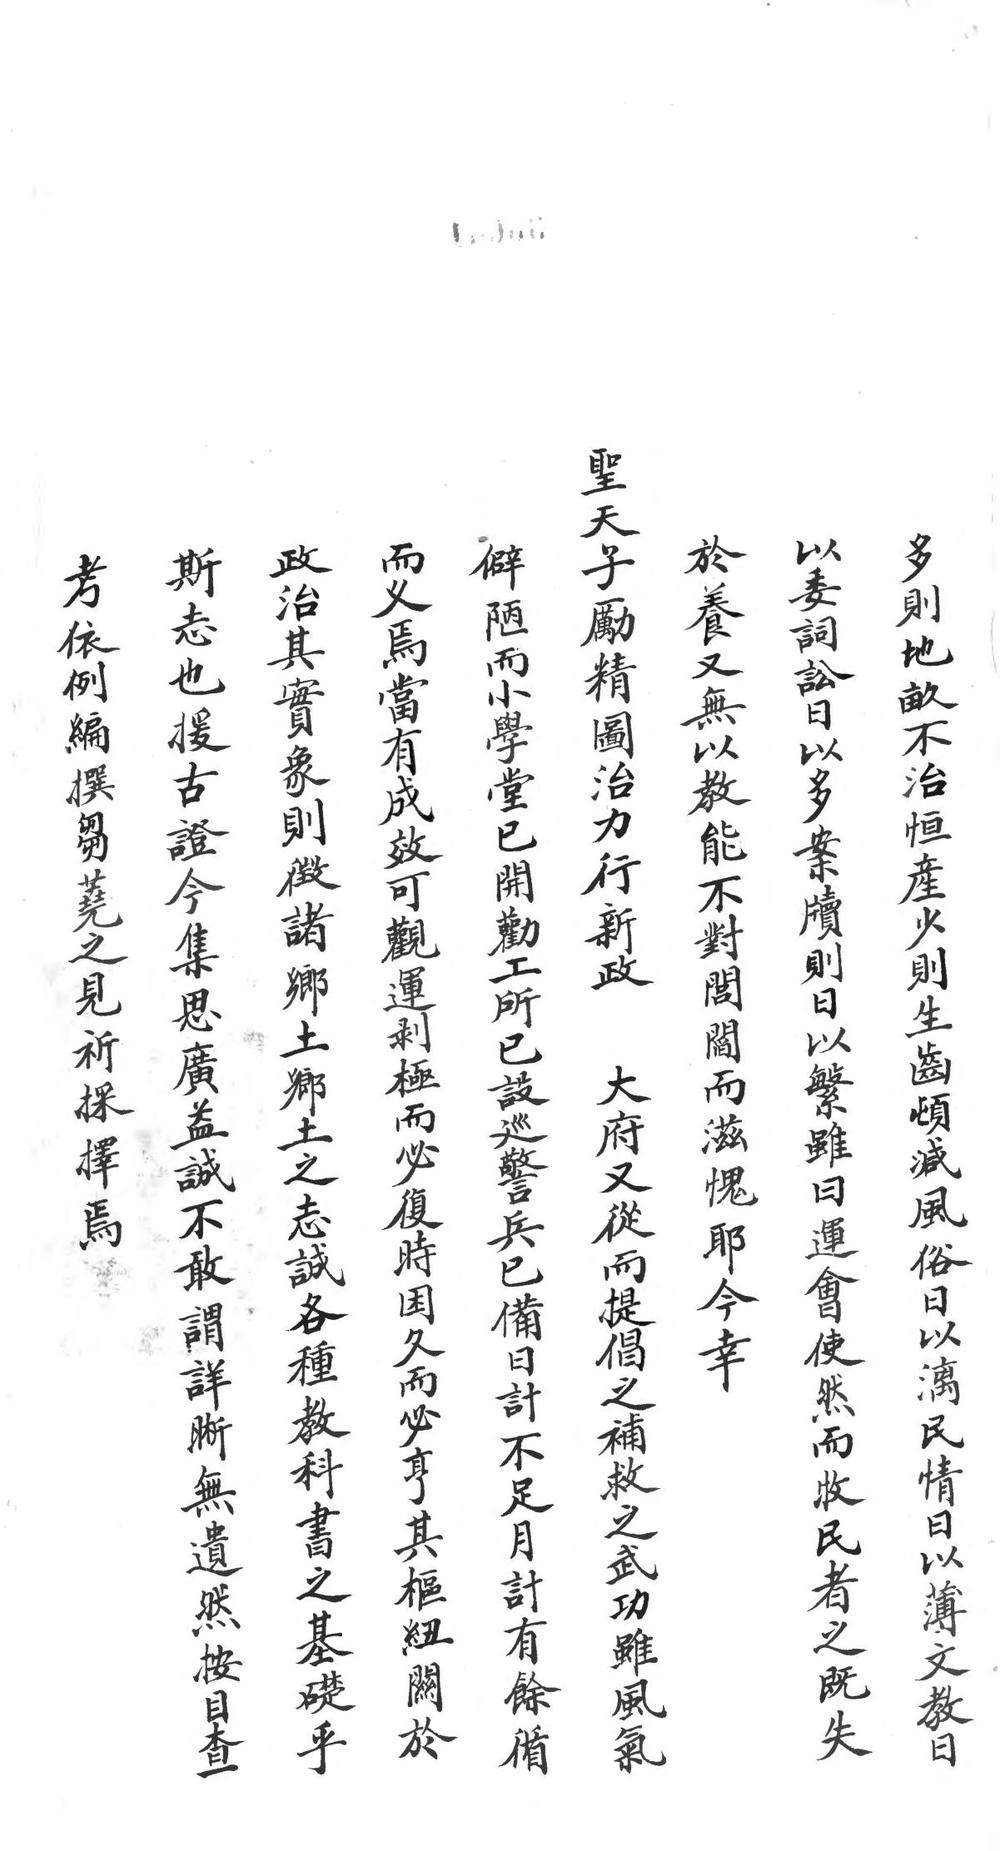 多則地畝不治恒產少則生齒頓減風俗日以漓民情日以薄文教日
以委詞訟日以多案牘則日以繁雖曰運會使然而牧民者之既失
於養又無以教能不對閭閻而滋愧耶今幸
聖天子勵精圖治力行新政 大府又從而提倡之補救之武功雖風氣
僻陋而小學堂已開勸工所已設巡警兵已備日計不足月計有餘循
而乂焉當有成效可觀運剥極而必復時困久而必亨其樞紐關於
政治其實象則徵諸鄉土鄉土之志誠各種教科書之基礎乎
斯志也援古證今集思廣益誠不敢謂詳晰無遺然按目查
考依例編撰芻蕘之見祈採擇焉